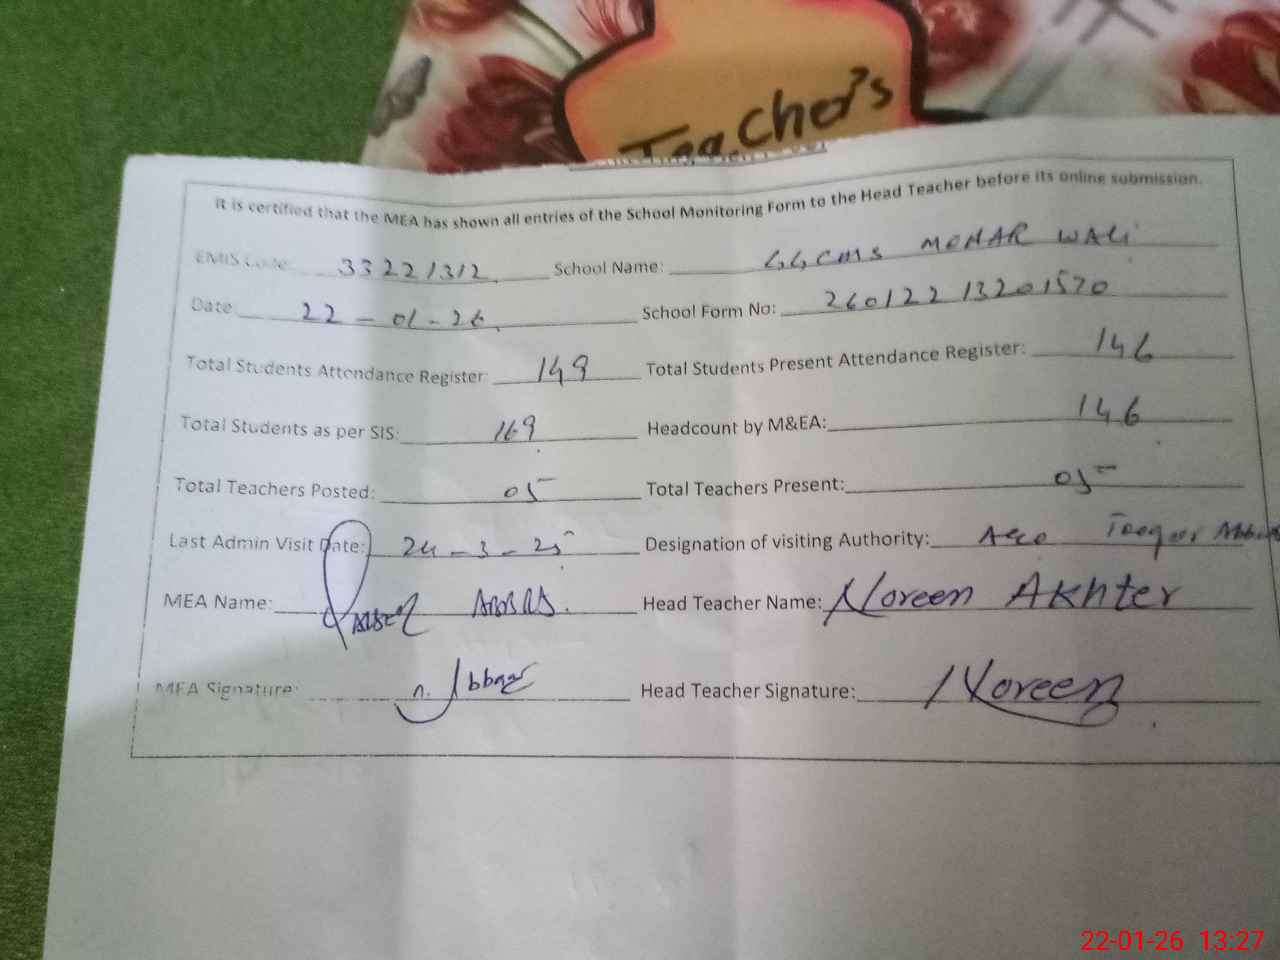 Teacher's
It is certified that the MEA has shown all entries of the School Monitoring Form to the Head Teacher before its online submission.
EMIS Code: 33221312 School Name: GGCMS MOHAR WALI
Date: 22-01-26 School Form No: 260122 13201570
Total Students Attendance Register: 149 Total Students Present Attendance Register: 146
Total Students as per SIS: 169 Headcount by M&EA: 146
Total Teachers Posted: 05 Total Teachers Present: 05
Last Admin Visit Date: 24-3-25 Designation of visiting Authority: AEO
MEA Name: ABBAS. Head Teacher Name: Noreen Akhter
MEA Signature: Head Teacher Signature: Noreen
22-01-26 13:27